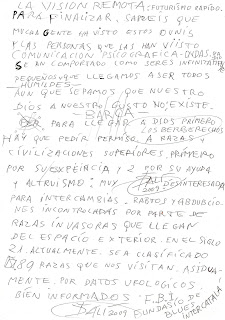 LA VISION REMOTA: FUTURISMO RAPIDO.
PARA FINALIZAR. SABREIS QUE
MUCHA GENTE HA VISTO ESTOS
Y LAS PERSONAS QUE LAS HAN VISTO
COMUNICACION PSICOGRAFICA-
SE HAN COMPORTADO COMO SERES INFINITAMENTE
PEQUEÑOS QUE LLEGAMOS A SER TODOS
HUMILDES
AUN QUE SEPAMOS QUE NUESTRO
DIOS A NUESTRO GUSTO NO EXISTE.
PARA LLEGAR A DIOS PRIMERO
LOS BERBERECHOS
HAY QUE PEDIR PERMISO A RAZAS Y
CIVILIZACIONES SUPERIORES, PRIMERO
POR SU EXPEIRCIA Y 2 POR SU AYUDA
Y ALTRUISMO: MUY DESINTERESADA
DALI 2009
PARA INTERCAMBIAS - RAPTOS Y ABDUCCIO
NES INCONTROLADAS POR PARTE DE
RAZAS INVASORAS QUE LLEGAN
DEL ESPACIO EXTERIOR. EN EL SIGLO
21. ACTUALMENTE. SEA CLASIFICADO
89 RAZAS QUE NOS VISITAN. ASIDUA-
MENTE. POR DATOS UFOLOGICOS.
BIEN INFORMADOS F.B.I.
DALI 2009 FUNDASIO DE
BLUES
INTERCATALA